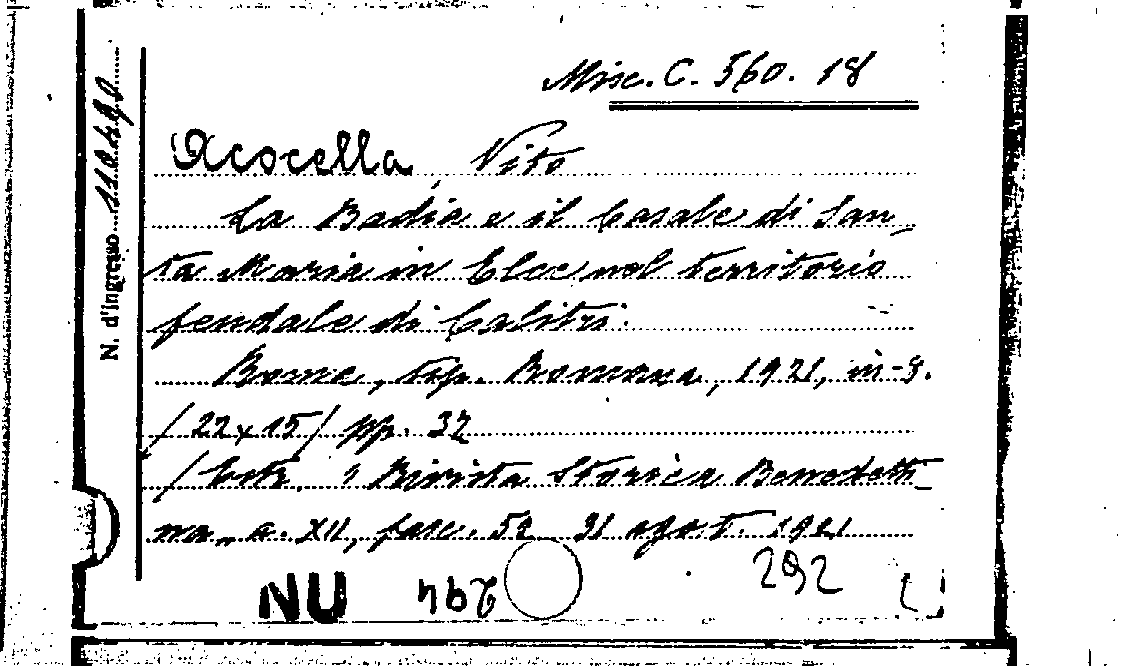 Misc. C. 560. 18
Acocella, Vito
La Badia e il Casale di San-
ta Maria in Elce nel territorio
feudale di Calitri.
Roma, tip. Romana, 1921, in-8.
/22x15/ pp. 32
/Estr. "Rivista Storica Benedetti-
na„ a. XII, fasc. 52 31 agost. 1921
N. d'ingresso
NU
292